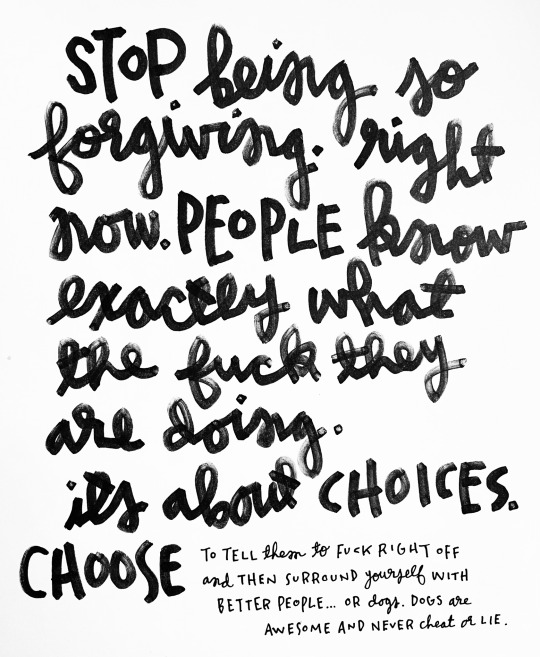 STOP being so
forgiving. right
now. PEOPLE know
exactly what
the fuck they
are doing.
it's about CHOICES.
CHOOSE
TO TELL them to FUCK RIGHT OFF
and THEN SURROUND yourself WITH
BETTER PEOPLE... OR dogs. DOGS are
AWESOME AND NEVER cheat or LIE.